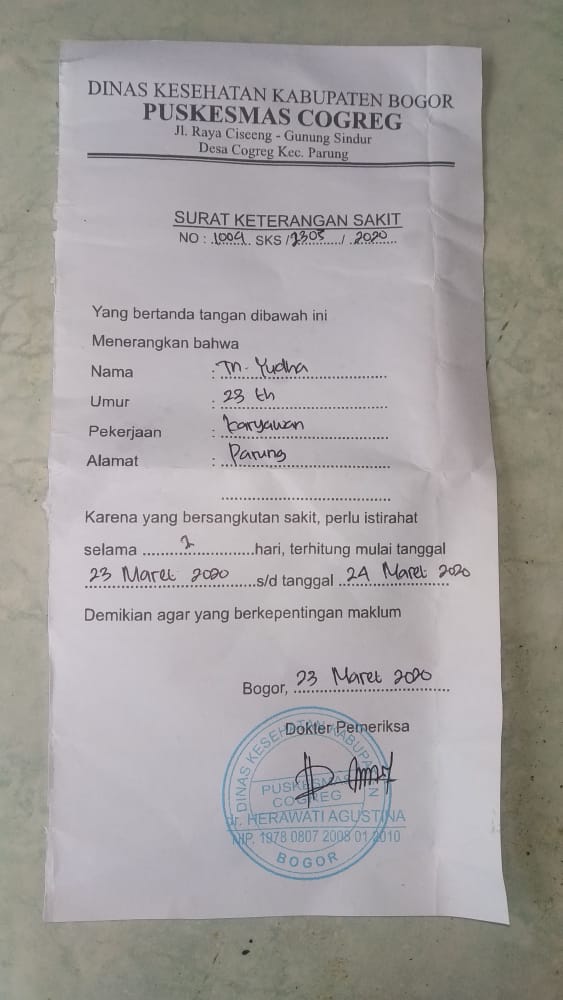 DINAS KESEHATAN KABUPATEN BOGOR
PUSKESMAS COGREG
Jl. Raya Ciseeng - Gunung Sindur
Desa Cogreg Kec. Parung
SURAT KETERANGAN SAKIT
NO : 1009. SKS /2303/ 2020
Yang bertanda tangan dibawah ini
Menerangkan bahwa
Nama : Tn. Yudha
Umur : 23 th
Pekerjaan : karyawan
Alamat : Parung
Karena yang bersangkutan sakit, perlu istirahat
selama 2 hari, terhitung mulai tanggal
23 Maret 2020 s/d tanggal 24 Maret 2020
Demikian agar yang berkepentingan maklum
Bogor, 23 Maret 2020
Dokter Pemeriksa
DINAS KESEHATAN KABUPATEN
PUSKESMAS
COGREG
dr. HERAWATI AGUSTINA
NIP. 1978 0807 2008 01 2010
BOGOR